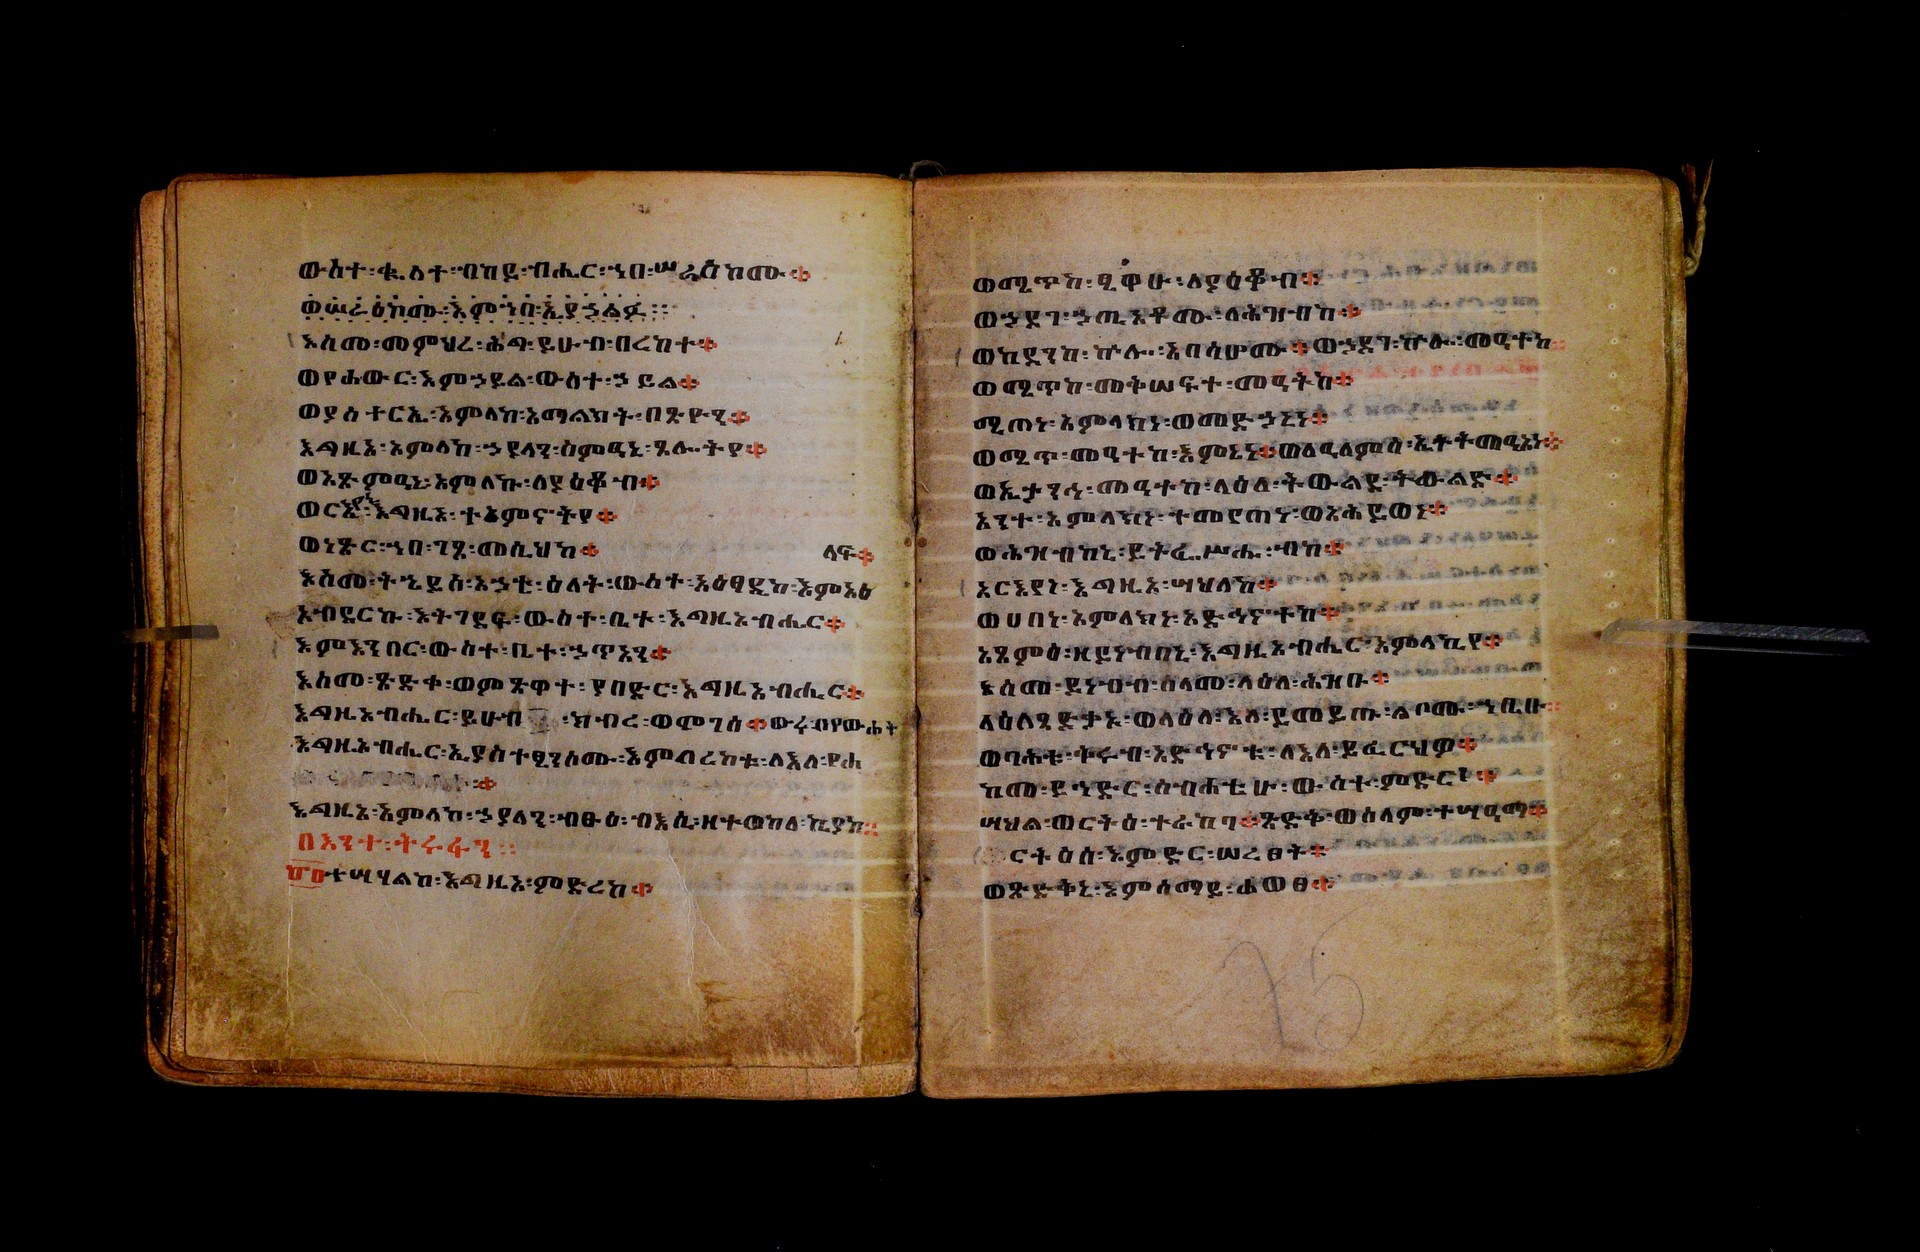 ውስተ፡ቈላተ፡ብካይ፡ብሔር፡ኀበ፡ሠራዕከሙ።
ወሠራዕከሙ፡እምኀበ፡ኢያኃልፉ፡፡
እስመ፡መምህረ፡ሕግ፡ይሁብ፡በረከተ።
ወየሐውር፡እምኃይል፡ውስተ፡ኃይል።
ወያስተርኢ፡አምላከ፡አማልክት፡በጽዮን።
እግዚኦ፡አምላከ፡ኃያላን፡ስምዓኒ፡ጸሎትየ።
ወአጽምዓኒ፡አምላኩ፡ለያዕቆብ።
ወርእየነ፡እግዚኦ፡ተአምኖትየ።
ወነጽር፡ኀበ፡ገጸ፡መሲህከ።
ላፍ።
እስመ፡ትኄይስ፡አኃቲ፡ዕለት፡ውስተ፡አዕፃዲከ፡እምአዕ
አብደርኩ፡እትገደፍ፡ውስተ፡ቤተ፡እግዚአብሔር።
እምእንበር፡ውስተ፡ቤተ፡ኃጥአን።
እስመ፡ጽድቀ፡ወምጽዋተ፡ያበድር፡እግዚአብሔር።
እግዚአብሔር፡ይሁብ፡ክብረ፡ወሞገሰ።
እግዚአብሔር፡ኢያስተፄንሶሙ፡እምበረከቱ፡ለእለ፡የሐ
እግዚኦ፡አምላከ፡ኃያላን፡ብፁዕ፡ብእሲ፡ዘተወከለ፡ኪያከ፡፡
በእንተ፡ትሩፋን፡፡
፹፬ተሣሃልከ፡እግዚኦ፡ምድረከ።
ወሜጥከ፡ፄዋሁ፡ለያዕቆብ።
ወኃደገ፡ኃጢአቶሙ፡ለሕዝብከ።
ወከደንከ፡ኵሎ፡አበሳሆሙ።ወኃደገ፡ኵሎ፡መዓተከ፡፡
ወሜጥከ፡መቅሠፍተ፡መዓትከ።
ሚጠነ፡አምላክነ፡ወመድኃኒነ።
ወሚጥ፡መዓተከ፡እምኔነ።ወለዓለምሰ፡ኢትትመዓአነ፡፡
ወኢታንኅ፡መዓተከ፡ላዕለ፡ትውልደ፡ትውልድ።
አንተ፡አምላክነ፡ተመየጠነ፡ወአሕይወነ።
ወሕዝብከኒ፡ይትፌሥሑ፡ብከ።
አርእየነ፡እግዚኦ፡ሣህለከ።
ወሀበነ፡አምላክነ፡አድኅኖተከ።
አጸምዕ፡ዘይነብበኒ፡እግዚአብሔር፡አምላኪየ።
እስመ፡ይነብብ፡ሰላመ፡ላዕለ፡ሕዝቡ።
ላዕለ፡ጻድቃኑ፡ወላዕለ፡እለ፡ይመይጡ፡ልቦሙ፡ኀቤሁ፡፡
ወባሕቱ፡ቅሩብ፡አድኅኖቱ፡ለእለ፡ይፈርህዎ።
ከመ፡ይኀድር፡ስብሐቲሁ፡ውስተ፡ምድርነ።
ሣህል፡ወርትዕ፡ተራከባ።ጽድቅ፡ወሰላም፡ተሣዓማ።
ርትዕሰ፡እምድር፡ሠረፀት።
ወጽድቅኒ፡እምሰማይ፡ሐወፀ።
75